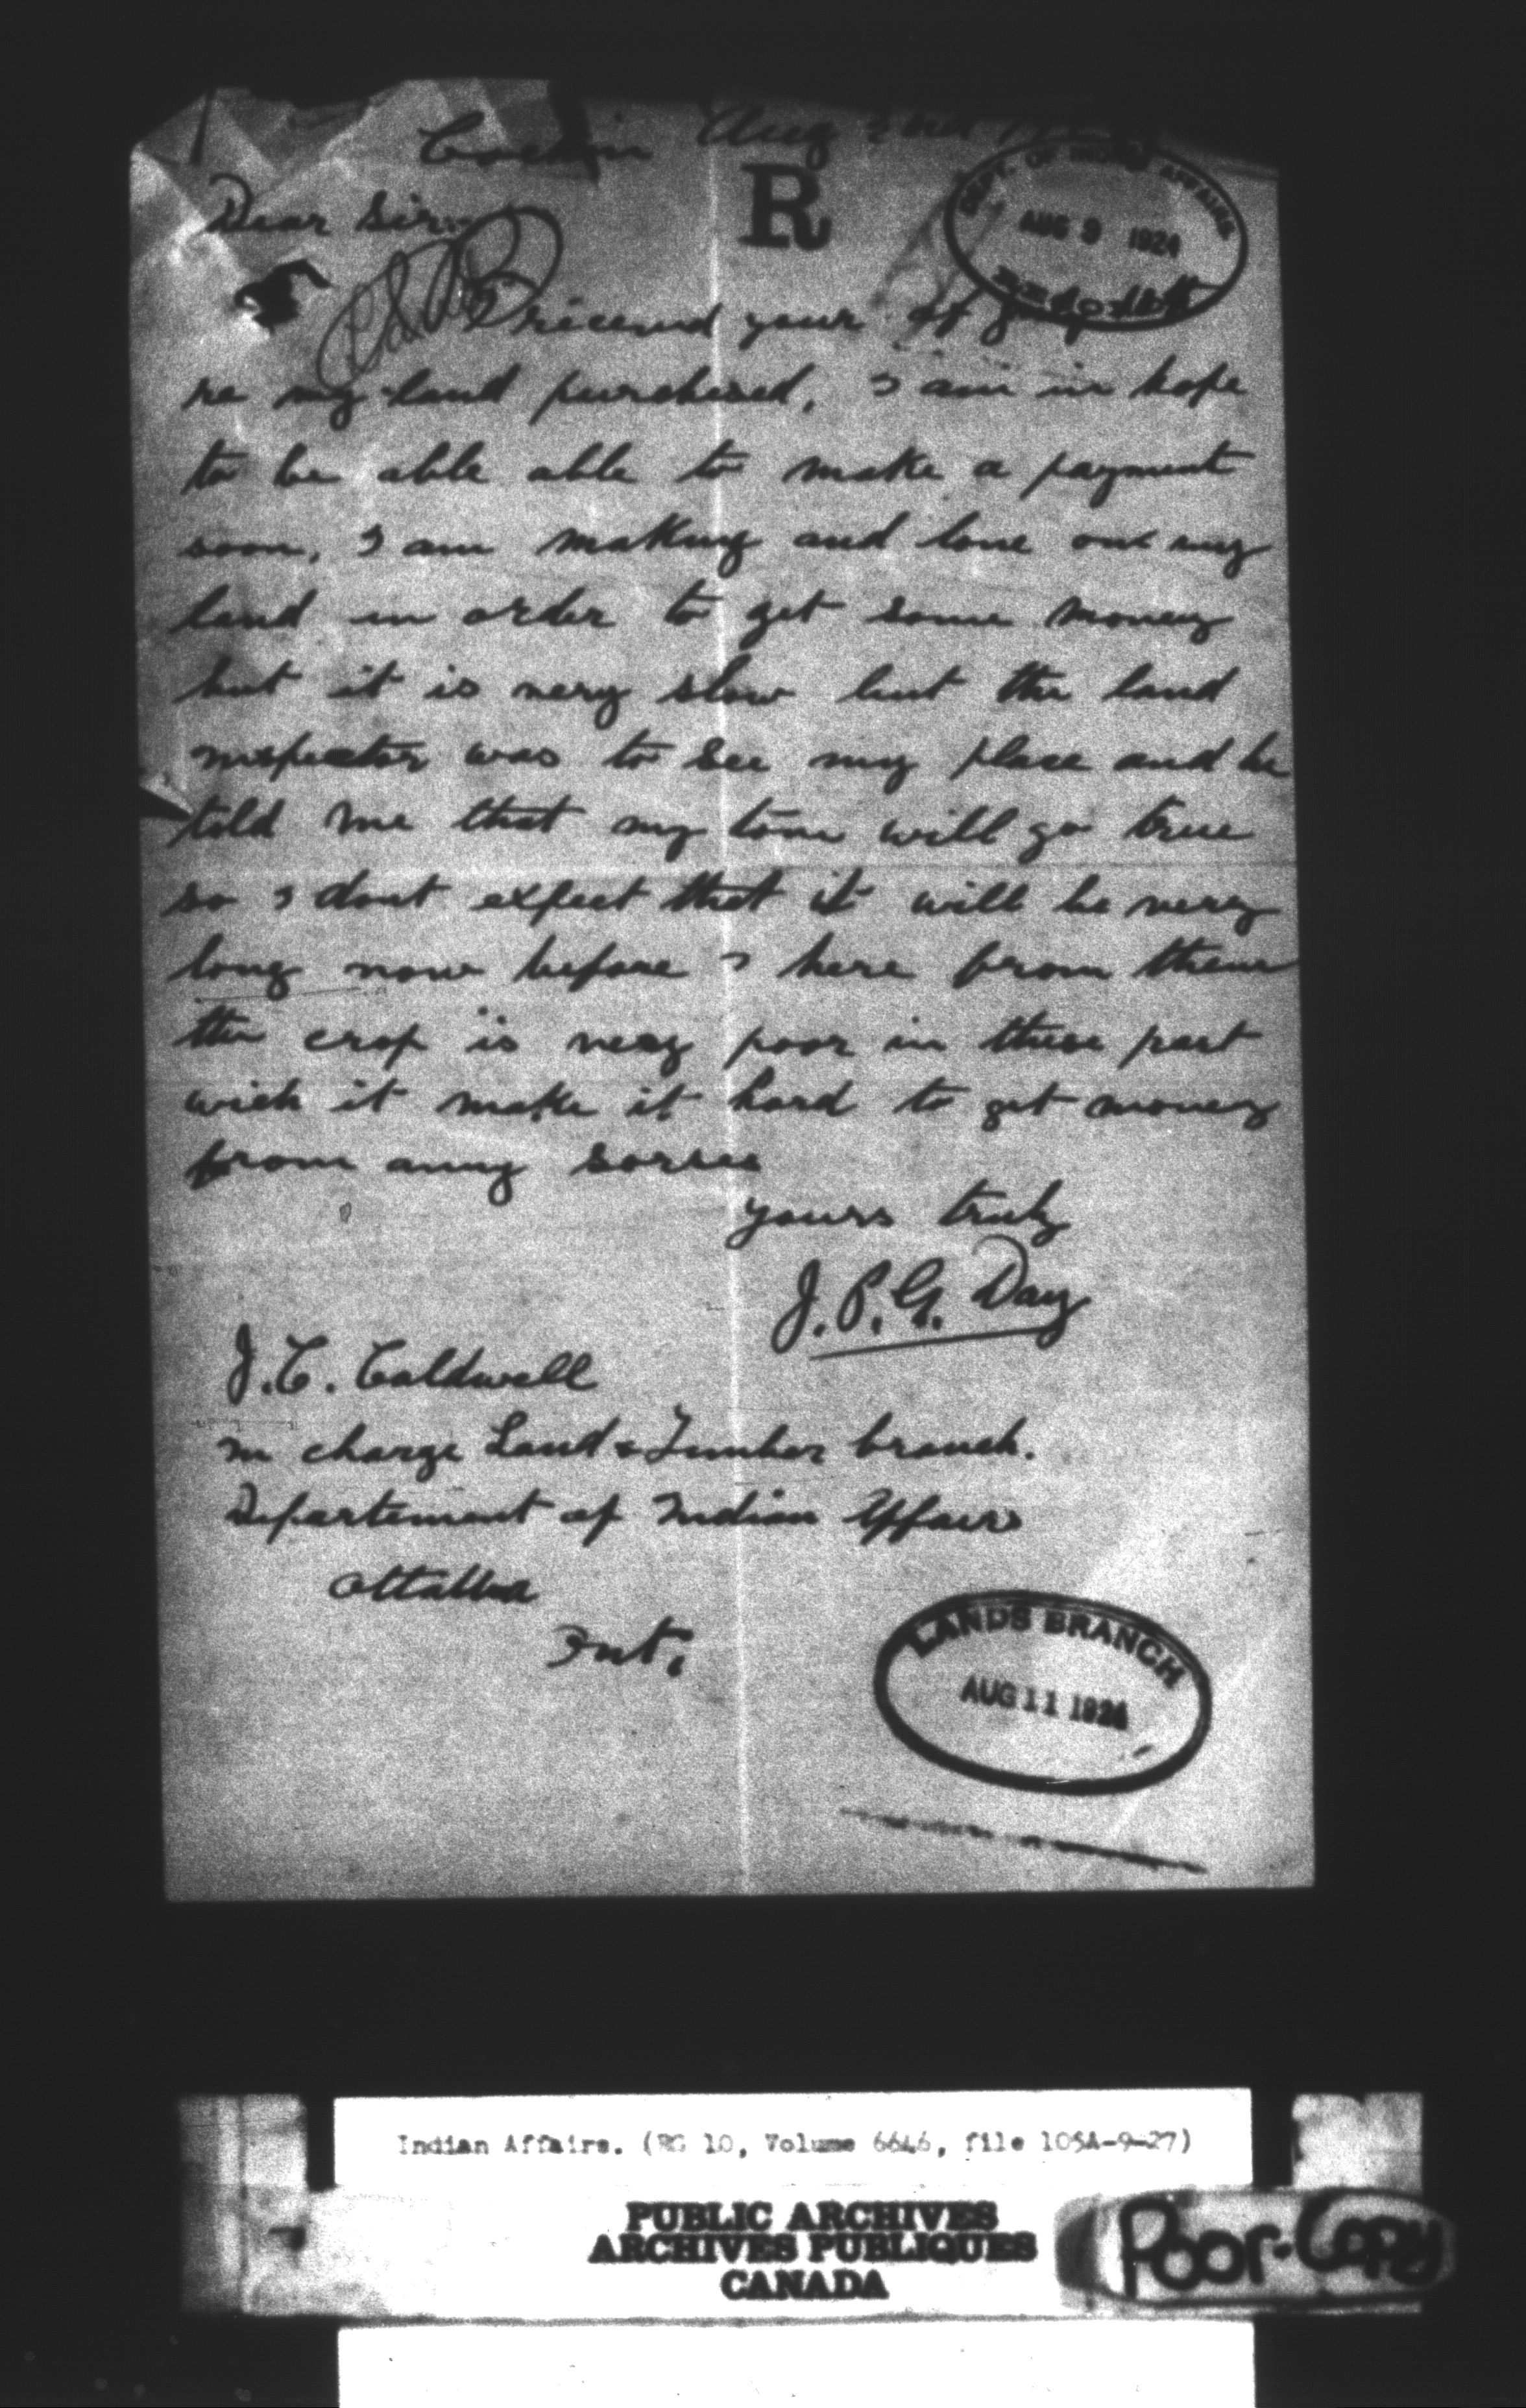 Aug 2nd
Dear Sir.
R
DEPT. OF INDIAN AFFAIRS
AUG 9 1924
I receivd your of
re my land purchesed, I am in hope
to be able able to make a payment
soon, I am making and lone on my
land in order to get some money
but it is very slow but the land
inspector was to see my place and he
told me that my lone will go true
so I dont expect that it will be very
long now before I here from them
the crop is very poor in these part
wich it make it hard to get money
from anny sorses
yours truly
J. P. G. Day
J. C. Caldwell
in charge Land & Timber branch.
Departement of Indian Affairs
Ottawa
Ont.
LANDS BRANCH
AUG 11 1924
Indian Affairs. (RG 10, Volume 6646, file 105A-9-27)
PUBLIC ARCHIVES
ARCHIVES PUBLIQUES
CANADA
Poor-Copy